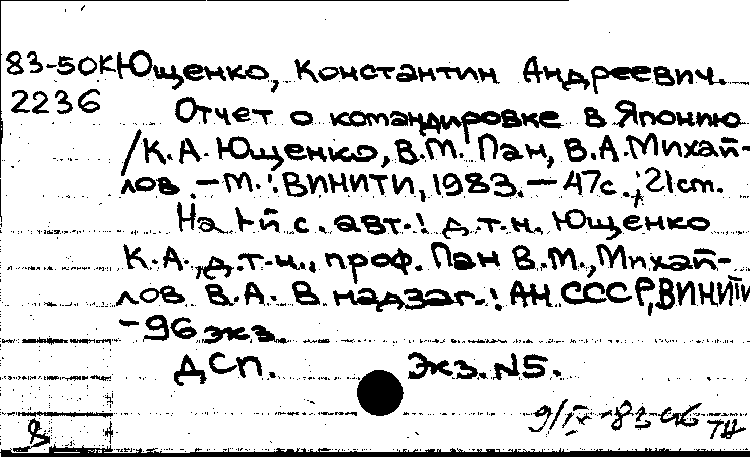 83-50К Ющенко, Константин Андреевич.
2236 Отчет о командировке в Японию
/К.А. Ющенко, В.М. Пан, В.А. Михай-
лов. – М.: ВИНИТИ, 1983. – 47с.; 21 cm.
На 1-й с. авт.: д.т.н. Ющенко
К.А., д.т.н., проф. Пан В.М., Михай-
лов В.А. В надзаг.: АН СССР, ВИНИТИ
-96 экз
ДСП. Экз. N5.
9/IX-83
8